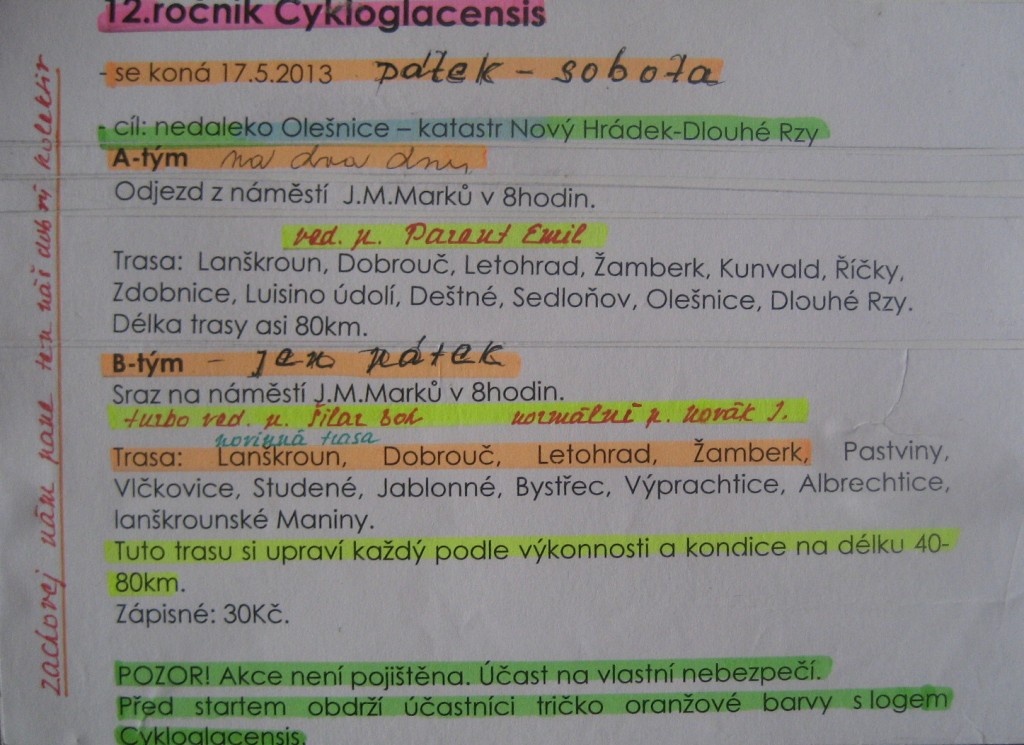 12.ročník Cykloglacensis
- se koná 17.5.2013 pátek - sobota
- cíl: nedaleko Olešnice – katastr Nový Hrádek-Dlouhé Rzy
A-tým na dva dny
Odjezd z náměstí J.M.Marků v 8hodin.
ved. p. Parent Emil
Trasa: Lanškroun, Dobrouč, Letohrad, Žamberk, Kunvald, Říčky,
Zdobnice, Luisino údolí, Deštné, Sedloňov, Olešnice, Dlouhé Rzy.
Délka trasy asi 80km.
B-tým - jen pátek
Sraz na náměstí J.M.Marků v 8hodin.
turbo ved. p. Šilar normální p. Novák J.
povinná trasa
Trasa: Lanškroun, Dobrouč, Letohrad, Žamberk, Pastviny,
Vlčkovice, Studené, Jablonné, Bystřec, Výprachtice, Albrechtice,
lanškrounské Maniny.
Tuto trasu si upraví každý podle výkonnosti a kondice na délku 40-
80km.
Zápisné: 30Kč.
POZOR! Akce není pojištěna. Účast na vlastní nebezpečí.
Před startem obdrží účastníci tričko oranžové barvy s logem
Cykloglacensis.
zachovej nám pane ten náš dobrý kolektiv